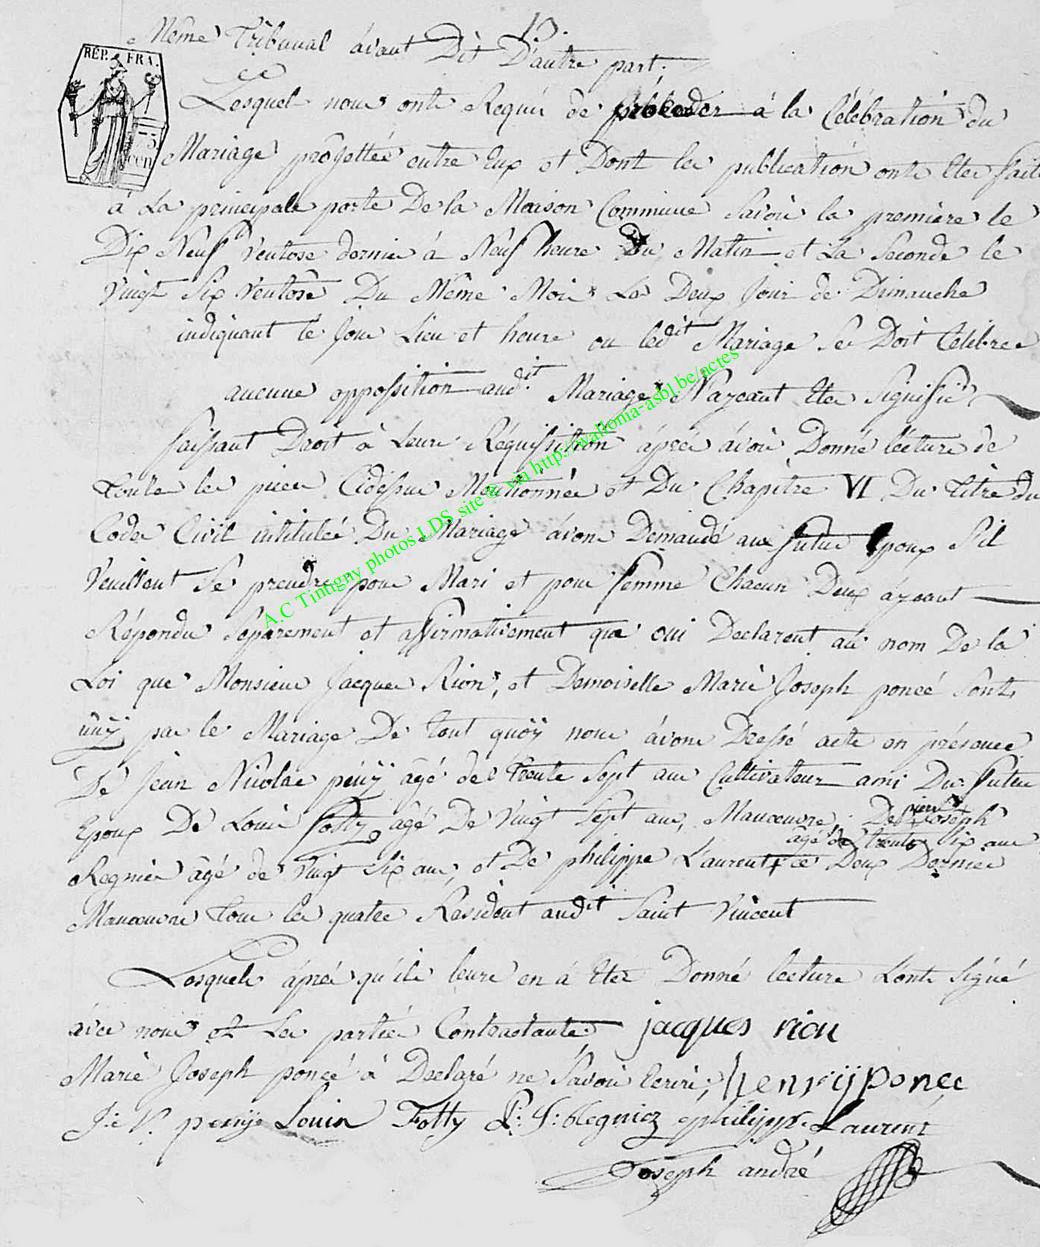 13.
Même Tribunal avant Dit D'autre part.
RÉP. FRA.
Lesquel nous ont Requis de procéder à la Célébration du
5 cen
Mariage projettée entre Eux et Dont les publication ont Eter faite
à La principale porte De la Maison Commune Savoir la première le
Dix Neuf Ventose dernier à Neuf heure Du Matin et La Seconde le
Vingt Six Ventose Du Même Mois Les Deux Jour de Dimanche
indiquant le Jour Lieu et heure ou ledit Mariage Se Doit Celebrer
aucune opposition audit Mariage N'ayeant Eter Signifié
faissant Droit à Leure Réquisition âpres avoir Donné lecture de
Toute les piece Cidessus Mentionnée et Du Chapitre VI Du Titre du
Code Civil intitulée Du Mariage avons Demandé aux futur Epoux S'il
Veuillent Se prendre pour Mari et pour femme Chacun Deux ayeant
Répondu Separement et affirmativement que oui Declarent au nom De la
Loi que Monsieur Jacques Rion, et Demoiselle Marie Joseph poncé Sont
ûnÿ par le Mariage De tout quoÿ nous âvons Dressé acte en présence
De Jean Nicolas péuÿ âgé de Trente Sept ans Cultivateur ami Du futur
Epoux De Louis Fotty âgé De Vingt Sept ans, Manœuvre De pierre Joseph
âgé de trente Six ans
Regnier âgé de Vingt Six ans, et De philippe Laurent ce Deux Dernier
Manœuvre Tous les quatre Resident audit Saint Vincent
Lesquels âprés qu'ils leure en à Eter Donné lecture L'ont Signé
avec nous et Les partie Contractante jacques rion
Marie Joseph poncé à Declaré ne Savoir Ecrire, henrÿ ponce
J: N: penÿ Louis Fotty P: J: Regniez philippe Laurent
Joseph andré
A.C Tintigny photos LDS, site © via http://wallonia-asbl.be/actes